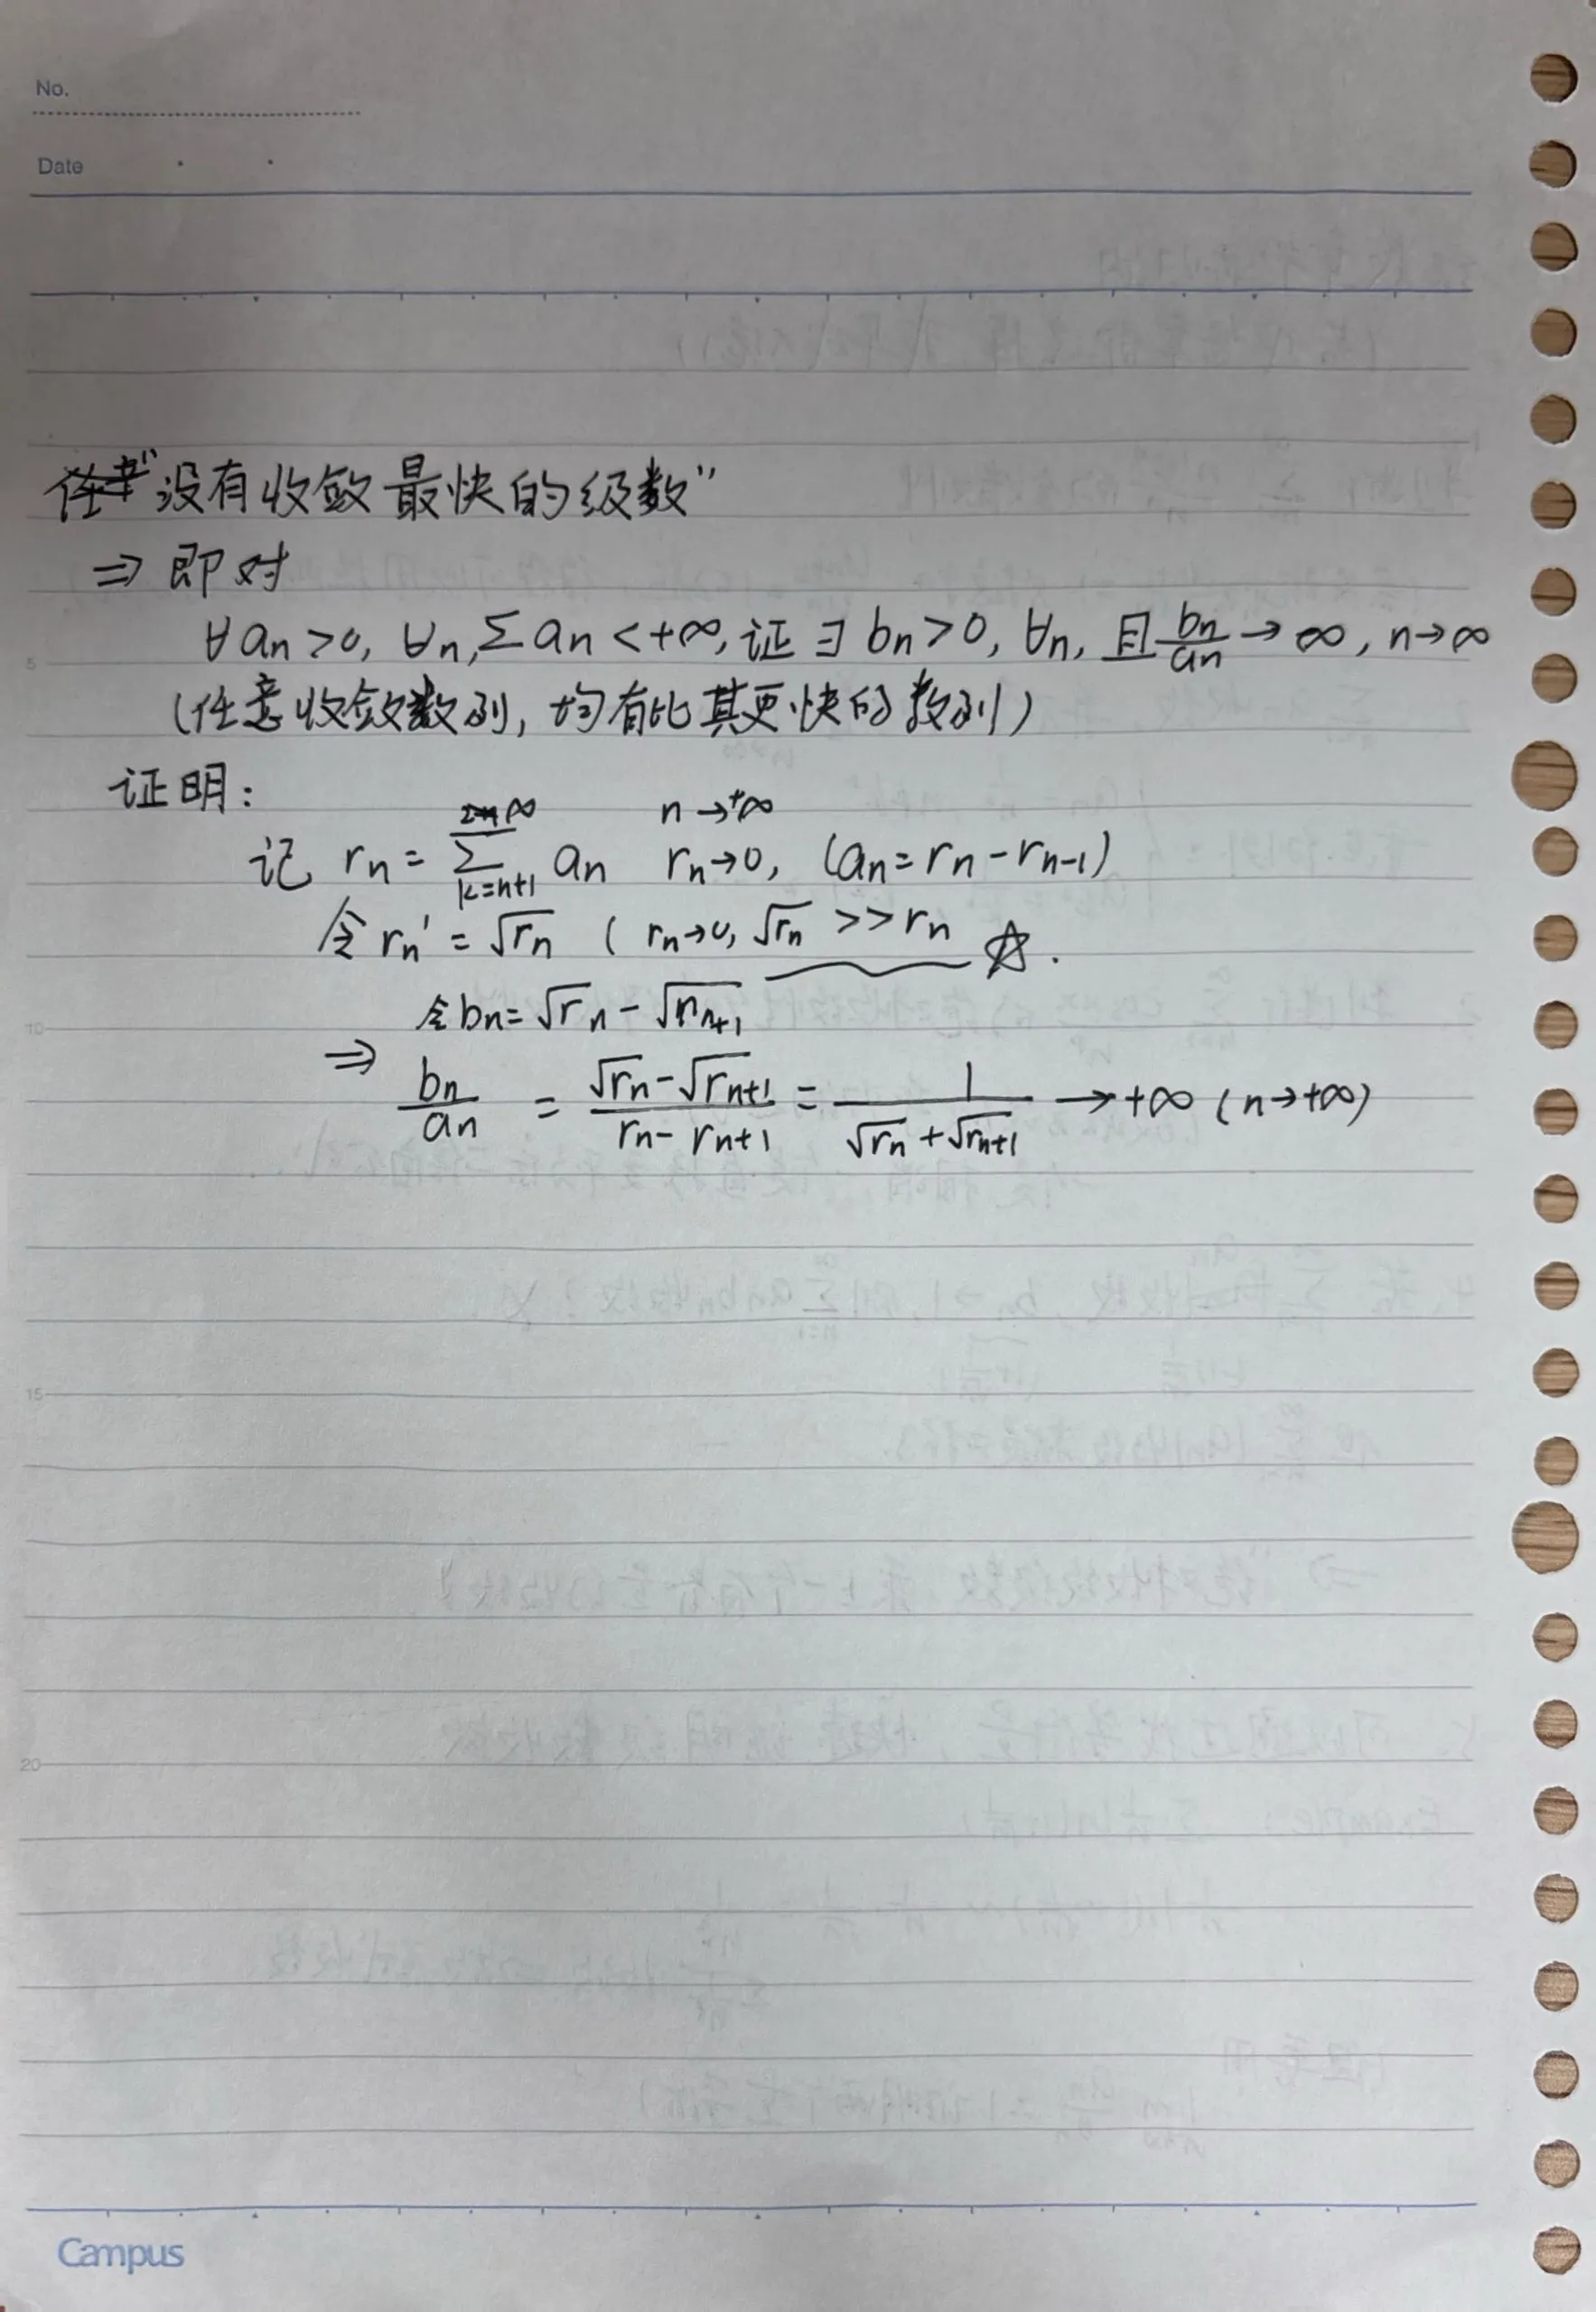 No.
Date
"没有收敛最快的级数"
⇒ 即对
∀ an > 0, ∀n, Σ an < +∞, 证 ∃ bn > 0, ∀n, 且 bn/an → ∞, n→∞
(任意收敛数列, 均有比其更快的数列)
证明:
记 rn = Σ_{k=n+1}^{∞} an   n→+∞ rn→0, (an = rn - rn-1)
令 rn' = √rn ( rn→0, √rn >> rn ☆.
令 bn = √rn - √rn+1
⇒ bn/an = (√rn - √rn+1)/(rn - rn+1) = 1/(√rn + √rn+1) → +∞ (n→+∞)
5
10
15
20
Campus